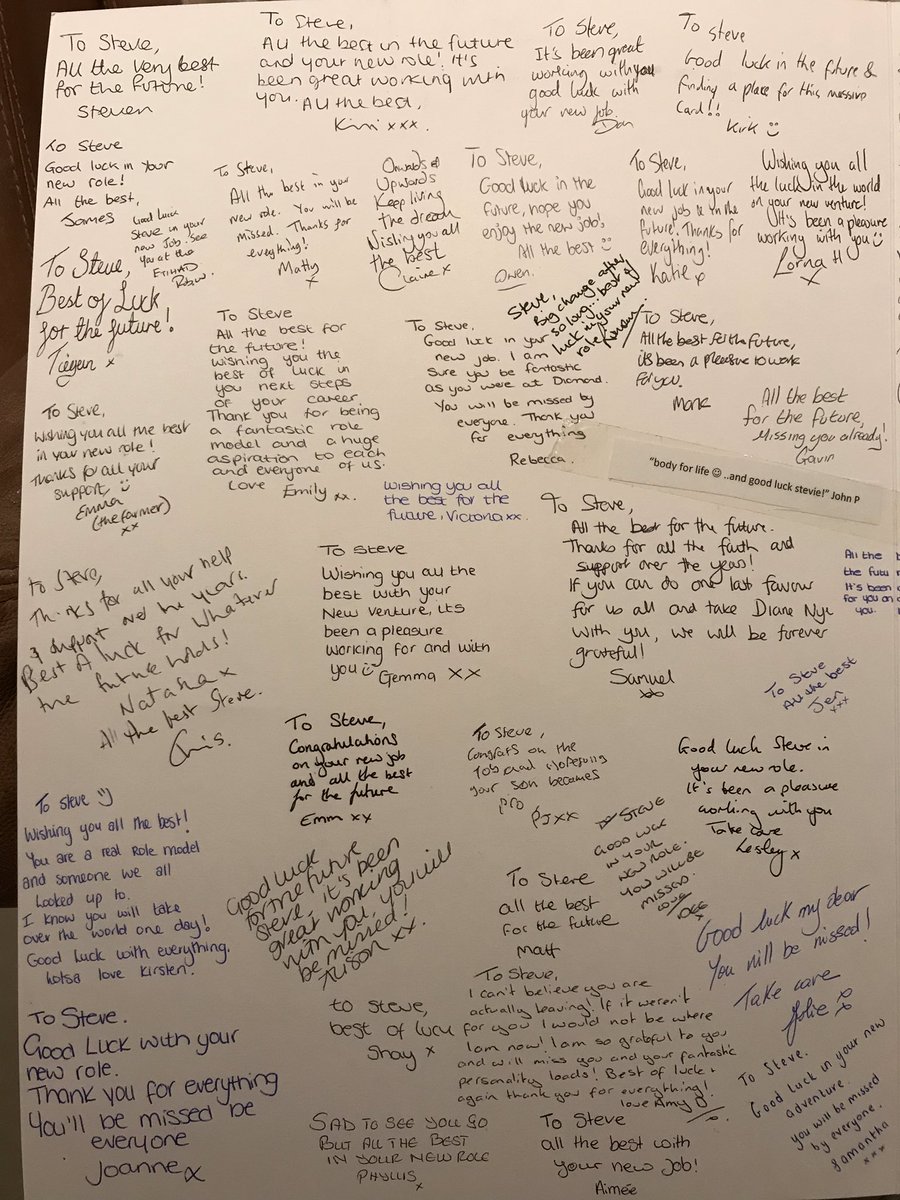 To Steve,
All the very best
for the future!
Steven
To Steve,
All the best in the future
and your new role! It's
been great working with
you.
All the best,
Kimi xxx.
To Steve,
It's been great
working with you
good luck with
your new job.
Dan
To Steve
Good luck in the future &
finding a place for this massive
Card!!
Kirk
To Steve
Good luck in your
new role!
All the best,
James
Good luck
Steve in your
new Job. See
you at the
ETIHAD
To Steve,
All the best in your
new role. You will be
missed. Thanks for
everything!
Matty
x
Onwards &
Upwards
Keep living
the dream
Wishing you all
the best
Claire x
To Steve,
Good luck in the
future, hope you
enjoy the new job!
All the best
Owen.
To Steve,
Good luck in your
new job & in the
future. Thanks for
everything!
Katie x
Wishing you all
the luck in the world
on your new venture!
It's been a pleasure
working with you
Lorna H
x
To Steve,
Best of Luck
for the future!
Tiegen x
To Steve
All the best for
the future!
wishing you the
best of luck in
you next steps
of your career.
Thank you for being
a fantastic role
model and a huge
aspiration to each
and everyone of us.
Love Emily xx.
Steve,
Big change after
so long... best of
luck in your new
role!
To Steve,
Good luck in your
new job. I am
Sure you be fantastic
as you were at Diamond.
You will be missed by
everyone. Thank you
for everything
Rebecca.
To Steve,
All the best for the future,
its been a pleasure to work
for you.
Mark
All the best
for the future,
Missing you already!
Gavin
"body for life ☺ ..and good luck stevie!" John P
To Steve,
Wishing you all the best
in your new role!
Thanks for all your
support
Emma
(the farmer)
xx
Wishing you all
the best for the
future, Victoria xx.
To Steve,
All the best for the future.
Thanks for all the faith and
support over the years!
If you can do one last favour
for us all and take Diane Nye
with you, we will be forever
grateful!
Samuel
xx
All the b
the futu
It's been
for you an
you.
To Steve,
Thanks for all your help
& support over the years.
Best of luck for whatever
the future holds!
Natasha x
All the best Steve.
Chris.
To Steve
Wishing you all the
best with your
New venture, its
been a pleasure
working for and with
you
Gemma XX
To Steve
All the best
Jen
xxx
To Steve,
Congratulations
on your new job
and all the best
for the future
Emm xx
To Steve,
Congrats on the
Job and Hopefully
your son becomes
pro
PJ xx
Good luck Steve in
your new role.
It's been a pleasure
working with you
Take care
Lesley x
To Steve
Wishing you all the best!
You are a real Role model
and someone we all
Looked up to.
I know you will take
over the world one day!
Good luck with everything.
Lotsa love Kirsten.
Good luck
for the future
Steve, it's been
great working
with you, you will
be missed!
Alison xx.
To Steve
all the best
for the future
Matt
STEVE
GOOD LUCK
IN YOUR
NEW ROLE.
YOU WILL BE
MISSED.
LOVE
DEE
Good luck my dear
You will be missed!
Take care
Jolie
To Steve.
Good Luck with your
new role.
Thank you for everything
You'll be missed be
everyone
Joanne x
To Steve,
best of lucu
Shay x
To Steve,
I can't believe you are
actually leaving! If it weren't
for you I would not be where
I am now! I am so grateful to you
and will miss you and your fantastic
personality loads! Best of luck &
again thank you for everything!
love Amy
To Steve.
Good luck in your new
adventure.
you will be missed
by everyone.
Samantha
xxx
SAD TO SEE YOU GO
BUT ALL THE BEST
IN YOUR NEW ROLE
PHYLLIS x
To Steve
all the best with
your new Job!
Aimée